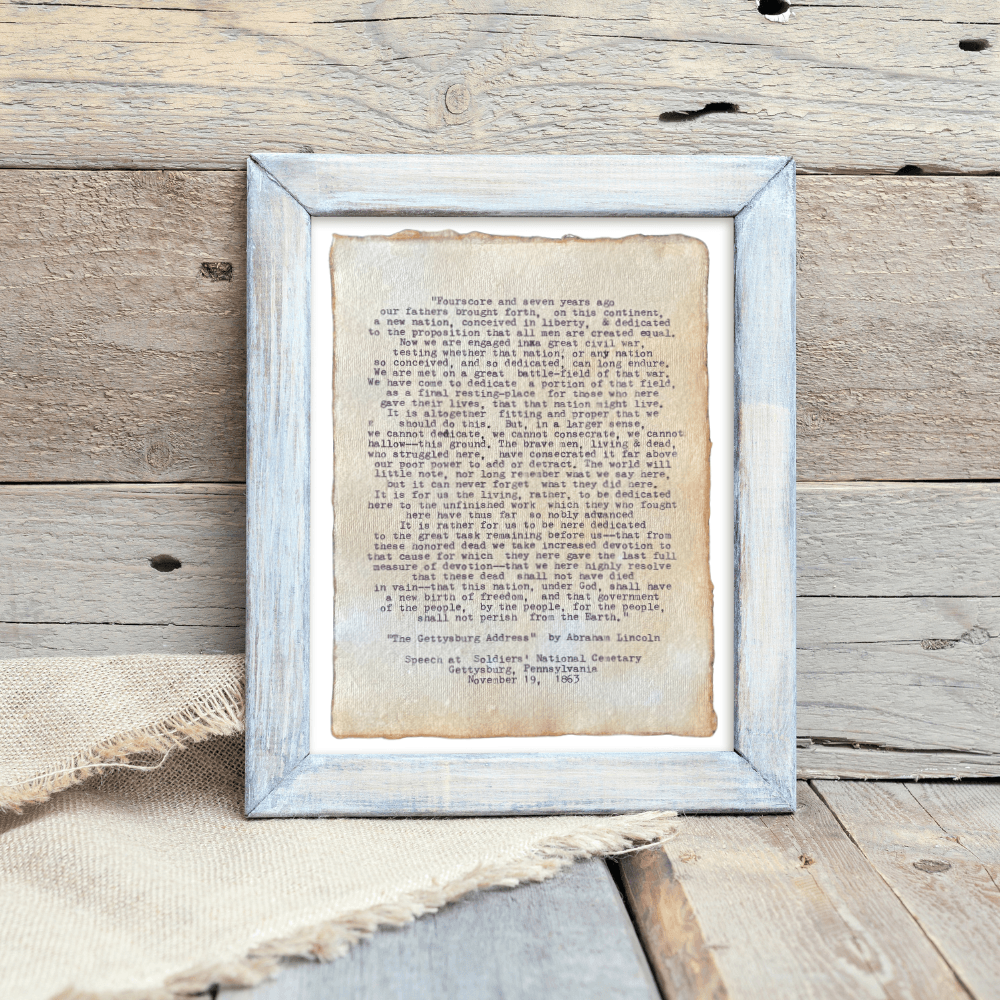 "Fourscore and seven years ago
our fathers brought forth, on this continent,
a new nation, conceived in liberty, & dedicated
to the proposition that all men are created equal.
Now we are engaged inxa great civil war,
testing whether that nation, or any nation
so conceived, and so dedicated, can long endure.
We are met on a great battle-field of that war.
We have come to dedicate a portion of that field,
as a final resting-place for those who here
gave their lives, that that nation might live.
It is altogether fitting and proper that we
should do this. But, in a larger sense,
we cannot dedicate, we cannot consecrate, we cannot
hallow--this ground. The brave men, living & dead,
who struggled here, have consecrated it far above
our poor power to add or detract. The world will
little note, nor long remember what we say here,
but it can never forget what they did here.
It is for us the living, rather, to be dedicated
here to the unfinished work which they who fought
here have thus far so nobly advanced
It is rather for us to be here dedicated
to the great task remaining before us--that from
these honored dead we take increased devotion to
that cause for which they here gave the last full
measure of devotion--that we here highly resolve
that these dead shall not have died
in vain--that this nation, under God, shall have
a new birth of freedom, and that government
of the people, by the people, for the people,
shall not perish from the Earth."
"The Gettysburg Address" by Abraham Lincoln
Speech at Soldiers' National Cemetary
Gettysburg, Pennsylvania
November 19, 1863